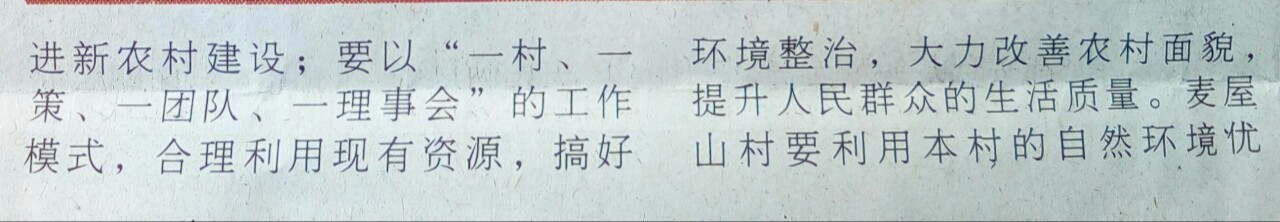 进新农村建设；要以“一村、一
策、一团队、一理事会”的工作
模式，合理利用现有资源，搞好
环境整治，大力改善农村面貌，
提升人民群众的生活质量。麦屋
山村要利用本村的自然环境优